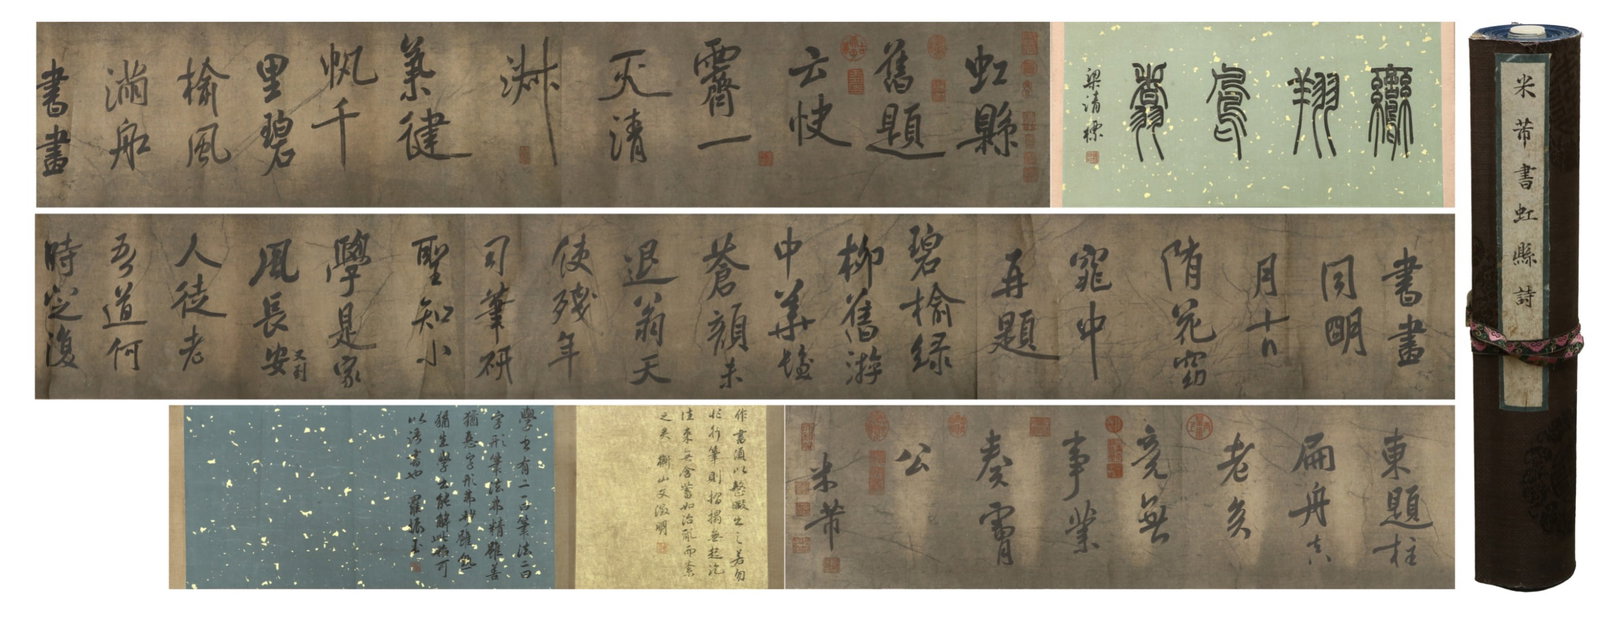 米芾書虹縣詩
鸞翔鳳翥
梁清標
虹縣
舊題
云快
霽一
天清
淑
氣健
帆千
里碧
榆風
滿船
書畫
書畫
同明
月十日
隋花窈
窕中
再題
碧榆綠
柳舊游
中華髮
蒼顏未
退翁天
使殘年
司筆研
聖知小
學是家
風長安
又到
人徒老
吾道何
時定復
東題柱
扁舟真
老矣
竟無
事業
奏膚
公
米芾
作書須以整暇出之若勿
於行筆則無起訖
往來無含蓄如治亂而紊
之矣 衡山文徵明
學書有二一曰筆法二曰
字形筆法弗精雖善
猶惡字形弗妙雖熟
猶生學書能解此方可
以語書也 羅振玉